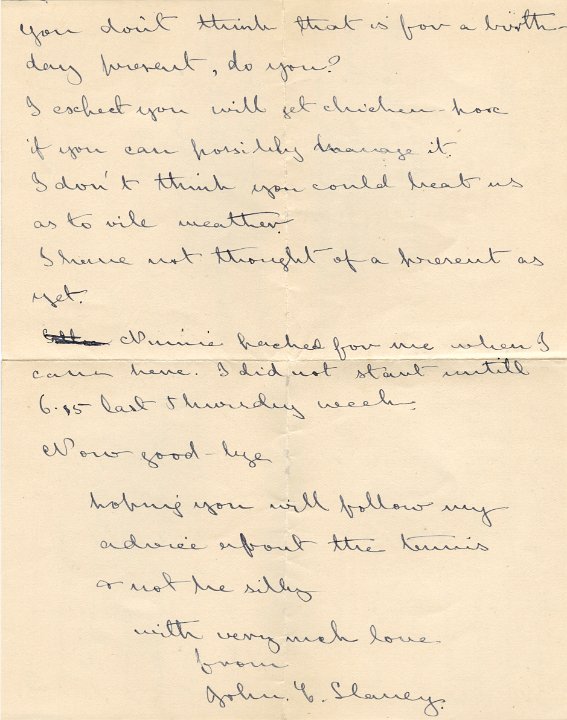 you don't think that is for a birth-
day present, do you?
I expect you will get chicken-pox
if you can possibly manage it.
I don't think you could beat us
as to vile weather.
I have not thought of a present as
yet.
Nunie packed for me when I
came here. I did not start untill
6.15 last Thursday week.
Now good-bye
hoping you will follow my
advice about the tennis
& not be silly
with very much love
from
John. Slaney.